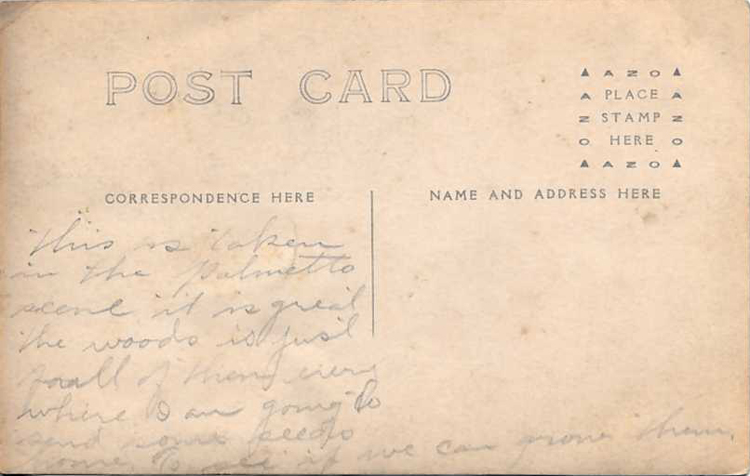 POST CARD
▲ A Z O ▲
A PLACE A
Z STAMP Z
O HERE O
▲ A Z O ▲
CORRESPONDENCE HERE
NAME AND ADDRESS HERE
this is taken
in the Palmetto
scene it is great
the woods is just
full of them every
where I am going to
send some seeds
home to see if we can grow them.